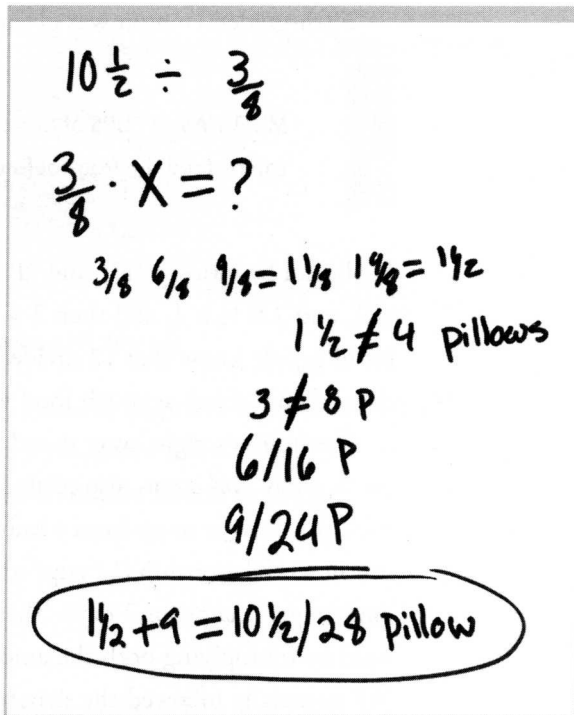 10 1/2 ÷ 3/8
3/8 · X = ?
3/8 6/8 9/8 = 1 1/8 1 4/8 = 1 1/2
1 1/2 ≠ 4 pillows
3 ≠ 8 P
6/16 P
9/24 P
1 1/2 + 9 = 10 1/2 / 28 pillow